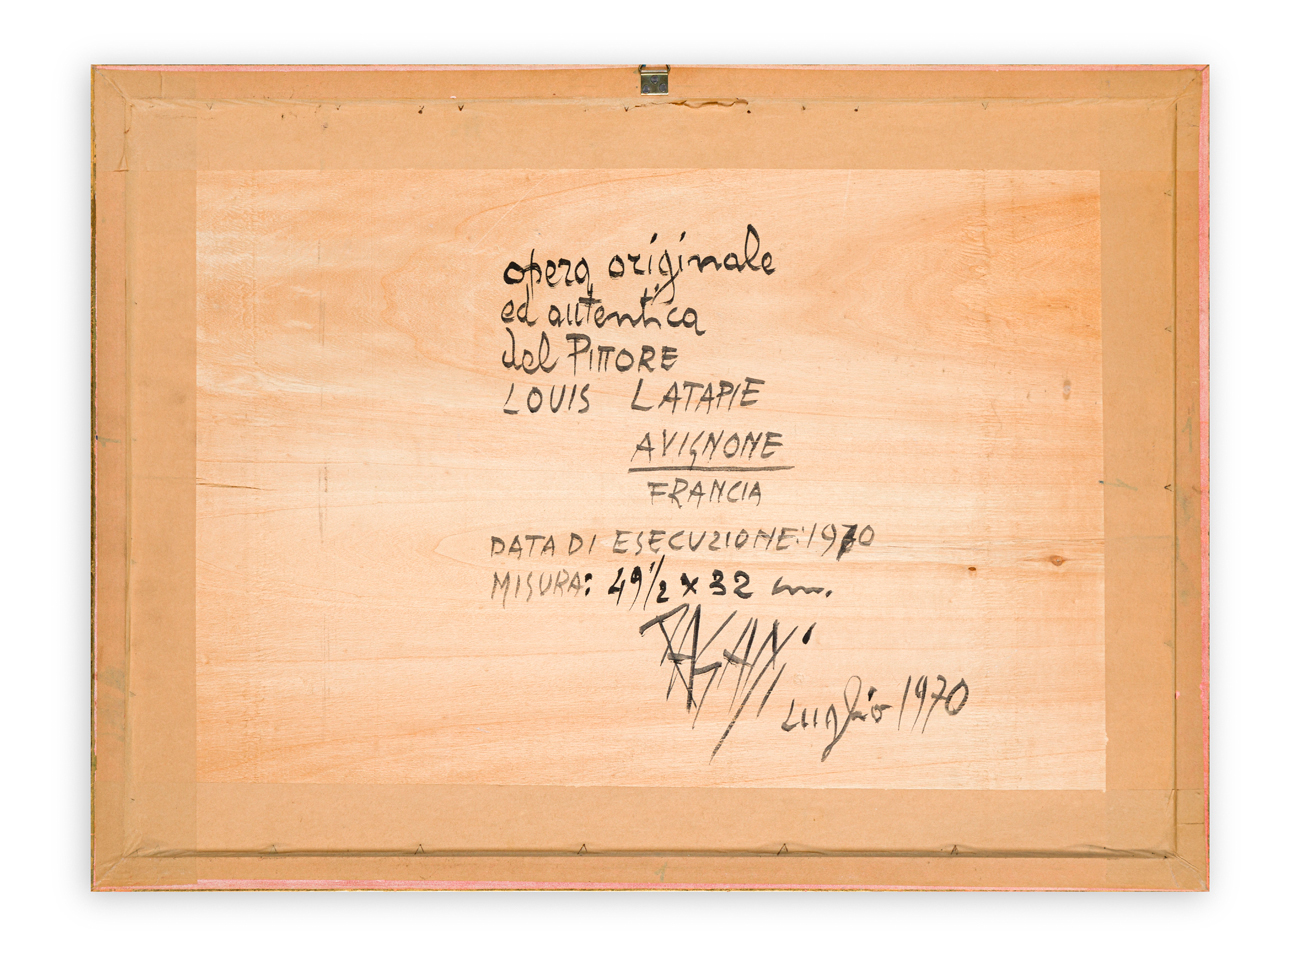 opera originale
ed autentica
del PITTORE
LOUIS LATAPIE
AVIGNONE
FRANCIA
DATA DI ESECUZIONE: 1970
MISURA: 49 1/2 x 32 cm.
PAGANI
Luglio 1970